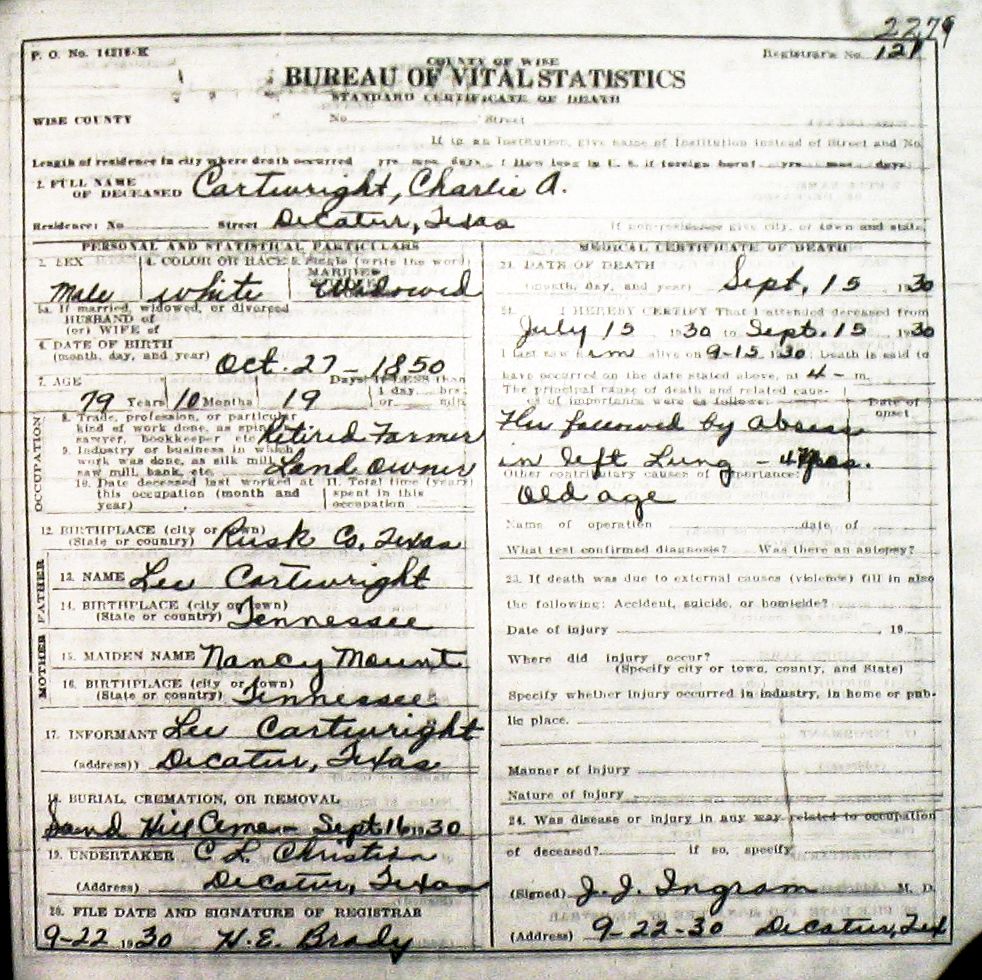 2279
P. O. No. 14218-K
Registrar's No. 121
COUNTY OF WISE
BUREAU OF VITAL STATISTICS
STANDARD CERTIFICATE OF DEATH
WISE COUNTY No Street
If in an Institution, give name of Institution instead of Street and No.
Length of residence in city where death occurred yrs mos days. How long in U. S. if foreign born? yrs mos days
2. FULL NAME OF DECEASED Cartwright, Charlie A.
Residence: No Street Decatur, Texas If non-residence give city, or town and state.
PERSONAL AND STATISTICAL PARTICULARS
3. SEX Male
4. COLOR OR RACE White
5. Single (write the word) MARRIED Widowed
5a. If married, widowed, or divorced
HUSBAND of
(or) WIFE of
6. DATE OF BIRTH
(month, day, and year) Oct. 27 - 1850
7. AGE 79 Years 10 Months 19 Days If LESS than 1 day hrs. or min.
OCCUPATION
8. Trade, profession, or particular kind of work done, as spinner sawyer, bookkeeper etc. Retired Farmer
9. Industry or business in which work was done, as silk mill, saw mill, bank, etc. Land owner
10. Date deceased last worked at this occupation (month and year)
11. Total time (years) spent in this occupation
12. BIRTHPLACE (city or town)
(State or country) Rusk Co, Texas
FATHER
13. NAME Lee Cartwright
14. BIRTHPLACE (city or town)
(State or country) Tennessee
MOTHER
15. MAIDEN NAME Nancy Mount
16. BIRTHPLACE (city or town)
(State or country) Tennessee
17. INFORMANT Lee Cartwright
(address)) Decatur, Texas
18. BURIAL, CREMATION, OR REMOVAL
Sand Hill Sept 16 1930
19. UNDERTAKER C L Christian
(Address) Decatur, Texas
20. FILE DATE AND SIGNATURE OF REGISTRAR
9-22 1930 H. E. Brady
MEDICAL CERTIFICATE OF DEATH
21. DATE OF DEATH
(month, day, and year) Sept. 15, 1930
I HEREBY CERTIFY That I attended deceased from
July 15 1930 to Sept. 15, 1930
I last saw him alive on 9-15 1930. Death is said to
have occurred on the date stated above, at 4 - m.
The principal cause of death and related causes of importance were as follows: Date of onset
Flu followed by abscess
in left Lung -
Other contributory causes of importance:
Old age
Name of operation date of
What test confirmed diagnosis? Was there an autopsy?
23. If death was due to external causes (violence) fill in also
the following: Accident, suicide, or homicide?
Date of injury , 19
Where did injury occur?
(Specify city or town, county, and State)
Specify whether injury occurred in industry, in home or pub-
lic place.
Manner of injury
Nature of injury
24. Was disease or injury in any way related to occupation
of deceased? if so, specify
(Signed) J. J. Ingram M. D.
(Address) 9-22-30 Decatur, Tex